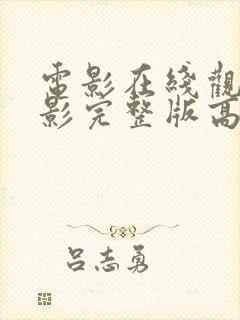 電影在綫觀
影完整版高
呂志勇